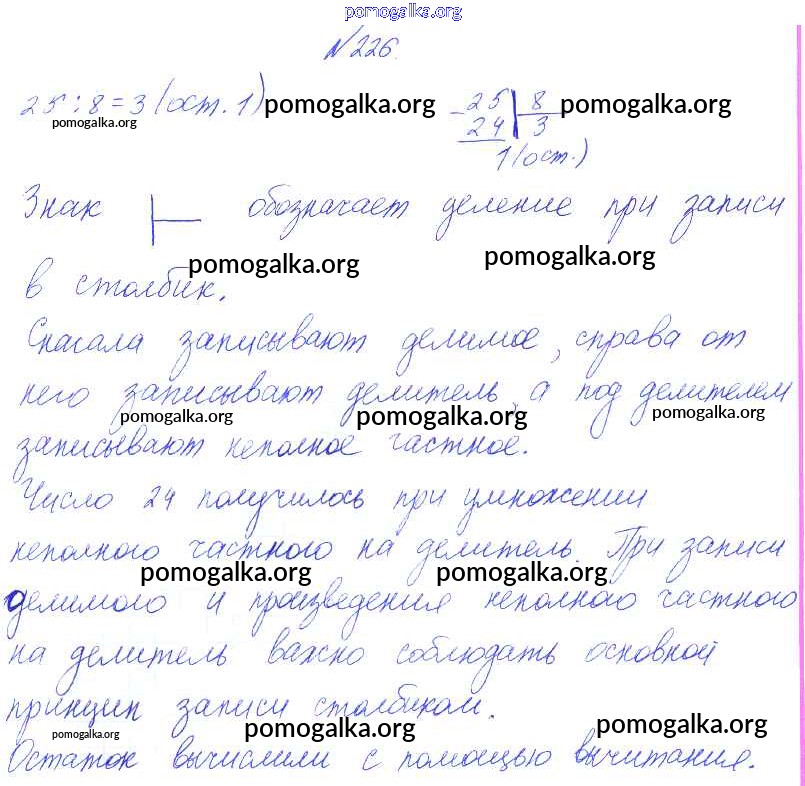 pomogalka.org
№226.
25 : 8 = 3 (ост. 1) pomogalka.org 25 8 pomogalka.org
pomogalka.org 24 3
1 (ост.)
Знак обозначает деление при записи
pomogalka.org pomogalka.org
в столбик.
Сначала записывают делимое, справа от
него записывают делитель, а под делителем
pomogalka.org pomogalka.org pomogalka.org
записывают неполное частное.
Число 24 получилось при умножении
неполного частного на делитель. При записи
pomogalka.org pomogalka.org
делимого и произведения неполного частного
на делитель важно соблюдать основной
принцип записи столбиком.
pomogalka.org pomogalka.org pomogalka.org
Остаток вычислили с помощью вычитания.